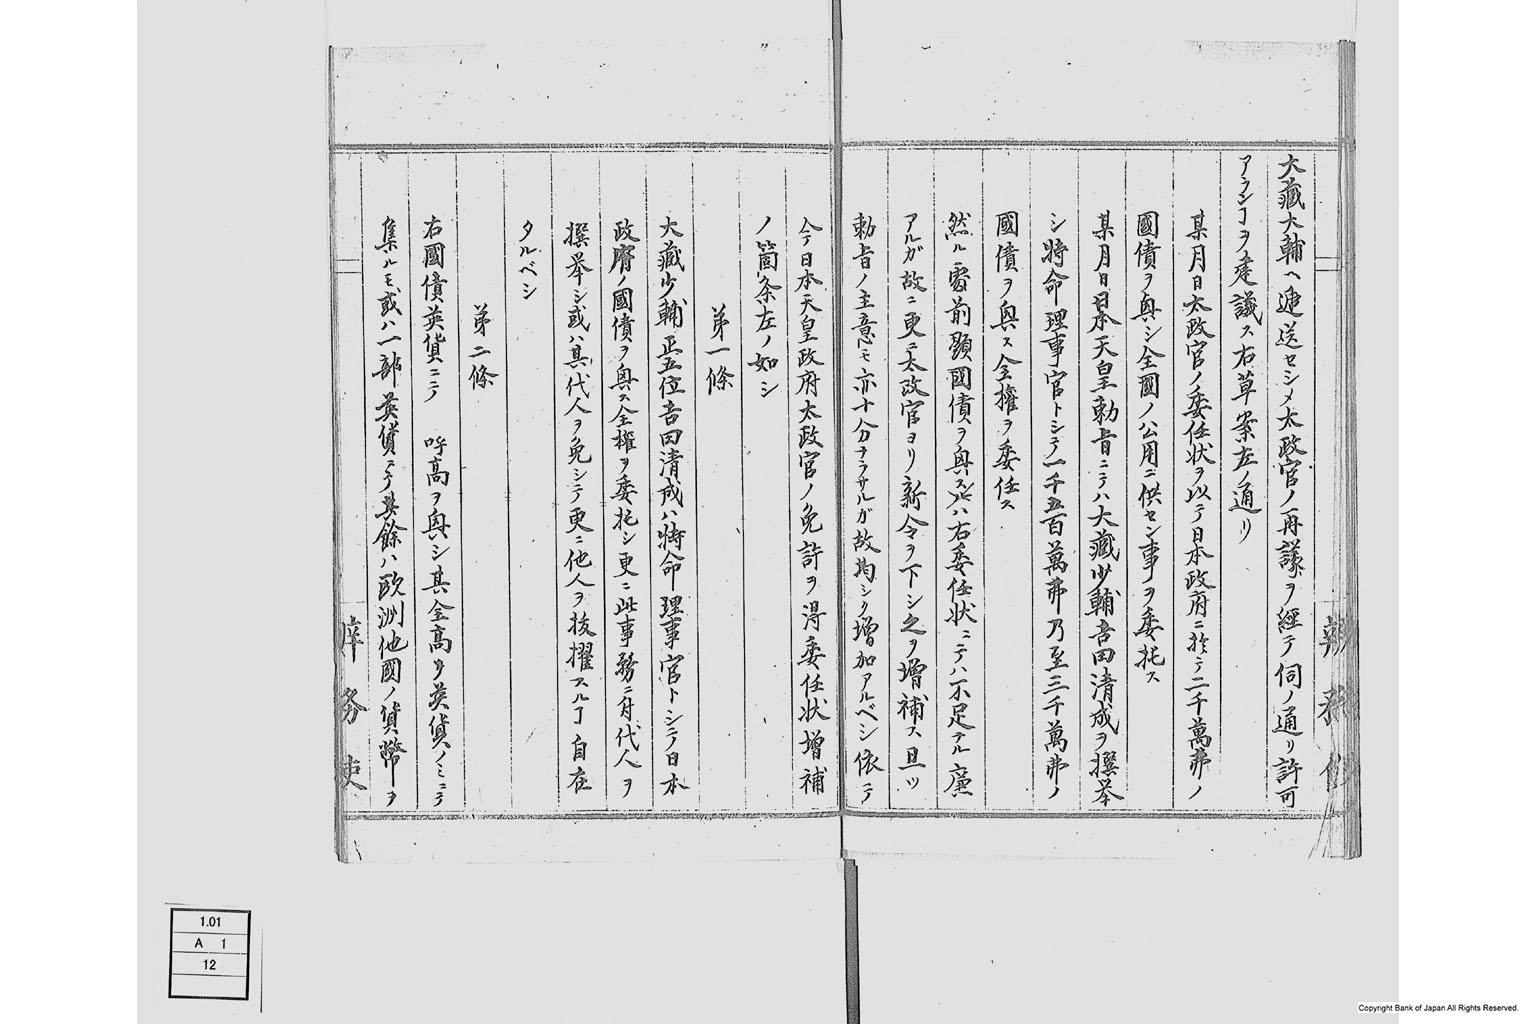 大藏大輔ヘ遞送セシメ太政官ノ再議ヲ經テ伺ノ通リ許可
アランヿヲ建議ス右草案左ノ通リ
某月日太政官ノ委任状ヲ以テ日本政府ニ於テ二千萬弗ノ
國債ヲ興シ全國ノ公用ニ供セン事ヲ委托ス
某月日日本天皇勅旨ニテハ大藏少輔吉田清成ヲ撰挙
シ特命理事官トシテ一千五百萬弗乃至三千萬弗ノ
國債ヲ興ス全權ヲ委任ス
然ル處前顕國債ヲ興スニハ右委任状ニテハ不足テル廉
アルガ故ニ更ニ太政官ヨリ新令ヲ下シ之ヲ増補ス且ツ
勅旨ノ主意モ亦十分ナラサルガ故均シク増加アルベシ依テ
今日本天皇政府太政官ノ免許ヲ得委任状増補
ノ箇条左ノ如シ
第一條
大藏少輔正五位吉田清成ハ特命理事官トシテ日本
政府ノ國債ヲ興ス全權ヲ委托シ更ニ此事務ニ付代人ヲ
撰挙シ或ハ其代人ヲ免シテ更ニ他人ヲ抜擢スルヿ自在
タルベシ
第二條
右國債英貨ニテ 呼高ヲ興シ其全高ヲ英貨ノミニテ
集ルモ或ハ一部英貨ニテ其餘ハ歐洲他國ノ貨幣ヲ
1.01
A 1
12
Copyright Bank of Japan All Rights Reserved.